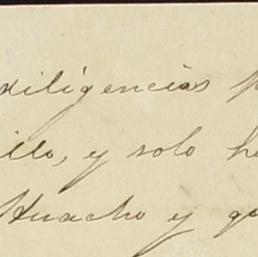 diligencias
illo, y solo
Huacho y